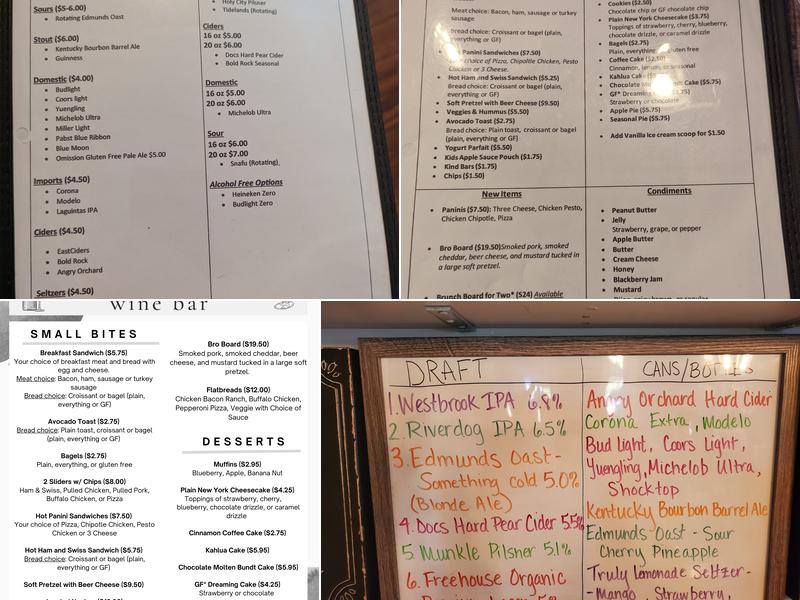 Sours ($5-6.00)
Rotating Edmunds Oast
Stout ($6.00)
Kentucky Bourbon Barrel Ale
Guinness
Domestic ($4.00)
Budlight
Coors light
Yuengling
Michelob Ultra
Miller Light
Pabst Blue Ribbon
Blue Moon
Omission Gluten Free Pale Ale $5.00
Imports ($4.50)
Corona
Modelo
Laguintas IPA
Ciders ($4.50)
EastCiders
Bold Rock
Angry Orchard
Seltzers ($4.50)
Holy City Pilsner
Tidelands (Rotating)
Ciders
16 oz $5.00
20 oz $6.00
Docs Hard Pear Cider
Bold Rock Seasonal
Domestic
16 oz $5.00
20 oz $6.00
Michelob Ultra
Sour
16 oz $6.00
20 oz $7.00
Snafu (Rotating)
Alcohol Free Options
Heineken Zero
Budlight Zero
Meat choice: Bacon, ham, sausage or turkey
sausage
Bread choice: Croissant or bagel (plain,
everything or GF)
Panini Sandwiches ($7.50)
choice of Pizza, Chipotle Chicken, Pesto
Chicken or 3 Cheese.
Hot Ham and Swiss Sandwich ($5.25)
Bread choice: Croissant or bagel (plain,
everything or GF)
Soft Pretzel with Beer Cheese ($9.50)
Veggies & Hummus ($5.50)
Avocado Toast ($2.75)
Bread choice: Plain toast, croissant or bagel
(plain, everything or GF)
Yogurt Parfait ($5.50)
Kids Apple Sauce Pouch ($1.75)
Kind Bars ($1.75)
Chips ($1.50)
Cookies ($2.50)
Chocolate chip or GF chocolate chip
Plain New York Cheesecake ($3.75)
Toppings of strawberry, cherry, blueberry,
chocolate drizzle, or caramel drizzle
Bagels ($2.75)
Plain, everything, gluten free
Coffee Cake ($2.50)
Cinnamon, lemon, or seasonal
Kahlua Cake
Chocolate Cake ($5.75)
GF* Dreaming ($5.75)
Strawberry or chocolate
Apple Pie ($5.75)
Seasonal Pie ($5.75)
Add Vanilla Ice cream scoop for $1.50
New Items
Paninis ($7.50): Three Cheese, Chicken Pesto,
Chicken Chipotle, Pizza
Bro Board ($19.50)Smoked pork, smoked
cheddar, beer cheese, and mustard tucked in
a large soft pretzel.
Brunch Board for Two* ($24) Available
Condiments
Peanut Butter
Jelly
Strawberry, grape, or pepper
Apple Butter
Butter
Cream Cheese
Honey
Blackberry Jam
Mustard
wine bar
SMALL BITES
Breakfast Sandwich ($5.75)
Your choice of breakfast meat and bread with
egg and cheese.
Meat choice: Bacon, ham, sausage or turkey
sausage
Bread choice: Croissant or bagel (plain,
everything or GF)
Avocado Toast ($2.75)
Bread choice: Plain toast, croissant or bagel
(plain, everything or GF)
Bagels ($2.75)
Plain, everything, or gluten free
2 Sliders w/ Chips ($8.00)
Ham & Swiss, Pulled Chicken, Pulled Pork,
Buffalo Chicken, or Pizza
Hot Panini Sandwiches ($7.50)
Your choice of Pizza, Chipotle Chicken, Pesto
Chicken or 3 Cheese
Hot Ham and Swiss Sandwich ($5.75)
Bread choice: Croissant or bagel (plain,
everything or GF)
Soft Pretzel with Beer Cheese ($9.50)
Bro Board ($19.50)
Smoked pork, smoked cheddar, beer
cheese, and mustard tucked in a large soft
pretzel.
Flatbreads ($12.00)
Chicken Bacon Ranch, Buffalo Chicken,
Pepperoni Pizza, Veggie with Choice of
Sauce
DESSERTS
Muffins ($2.95)
Blueberry, Apple, Banana Nut
Plain New York Cheesecake ($4.25)
Toppings of strawberry, cherry,
blueberry, chocolate drizzle, or caramel
drizzle
Cinnamon Coffee Cake ($2.75)
Kahlua Cake ($5.95)
Chocolate Molten Bundt Cake ($5.95)
GF* Dreaming Cake ($4.25)
Strawberry or chocolate
DRAFT
1. Westbrook IPA 6.8%
2. Riverdog IPA 6.5%
3. Edmunds Oast-
Something cold 5.0%
(Blonde Ale)
4. Docs Hard Pear Cider 5.5%
5. Munkle Pilsner 5.1%
6. Freehouse Organic
CANS/BOTTLES
Angry Orchard Hard Cider
Corona Extra, Modelo
Bud Light, Coors Light,
Yuengling, Michelob Ultra,
Shocktop
Kentucky Bourbon Barrel Ale
Edmunds Oast - Sour
Cherry Pineapple
Truly Lemonade Seltzer-
- Mango, Strawberry,